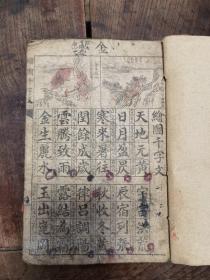 繪圖千字文
天地元黃 宇宙洪荒
日月盈昃 辰宿列張
寒來暑往 秋收冬藏
閏餘成歲 律呂調陽
雲騰致雨 露結為霜
金生麗水 玉出崑岡
金